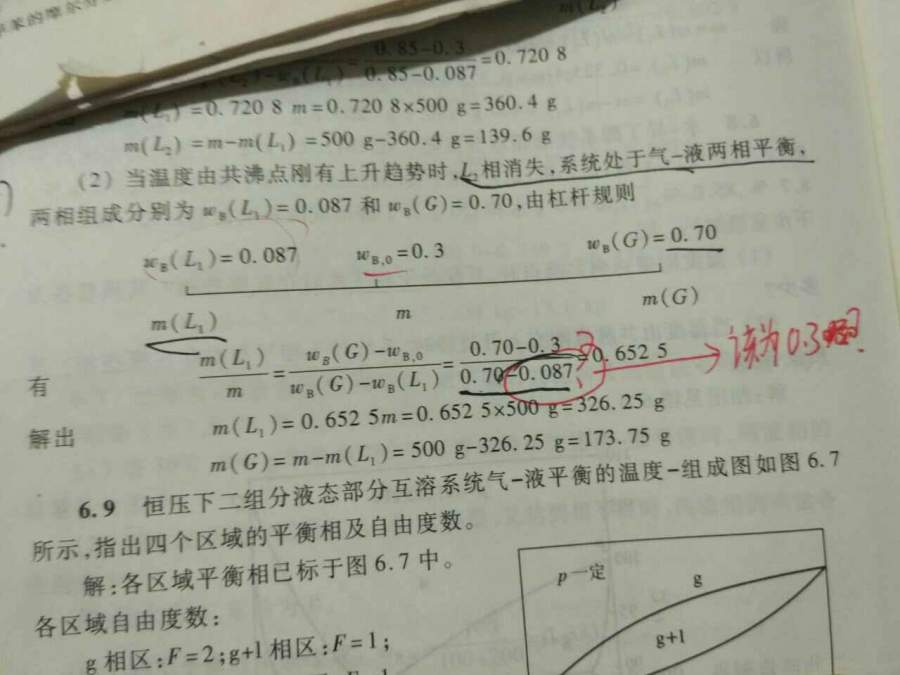 苯的摩尔分
m(L₂)
w_B(L₁) = (0.85-0.3)/(0.85-0.087) = 0.720 8
m(L₁) = 0.720 8 m = 0.720 8×500 g = 360.4 g
m(L₂) = m-m(L₁) = 500 g-360.4 g = 139.6 g
(2) 当温度由共沸点刚有上升趋势时,L₂相消失,系统处于气-液两相平衡,
两相组成分别为 w_B(L₁)=0.087 和 w_B(G)=0.70,由杠杆规则
w_B(L₁)=0.087 w_B,0=0.3 w_B(G)=0.70
m(L₁) m m(G)
有 m(L₁)/m = (w_B(G)-w_B,0)/(w_B(G)-w_B(L₁)) = (0.70-0.3)/(0.70-0.087) = 0.652 5 ? → 该为0.3吧?
解出 m(L₁)= 0.652 5m=0.652 5×500 g=326.25 g
m(G)= m-m(L₁)= 500 g-326.25 g=173.75 g
6.9 恒压下二组分液态部分互溶系统气-液平衡的温度-组成图如图 6.7
所示,指出四个区域的平衡相及自由度数。
解:各区域平衡相已标于图 6.7 中。
各区域自由度数:
g 相区:F=2;g+l 相区:F=1;
p 一定
g
g+l